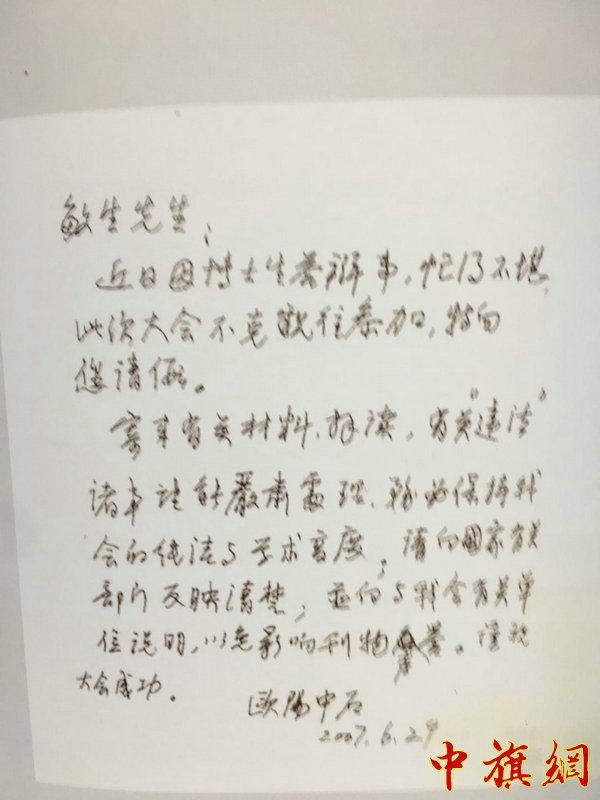 敏生先生：
近日因博士生答辩事，忙得不堪，
此次大会不克亲往参加，特向
您请假。
寄来有关材料，拜读，有关“违法”
诸事望能严肃处理，务必保持我
会的纯洁与学术高度，请向国家有关
部门反映清楚；并向与我会有关单
位说明，以免影响刊物声誉。谨祝
大会成功。
欧阳中石
2007.6.29
中旗網